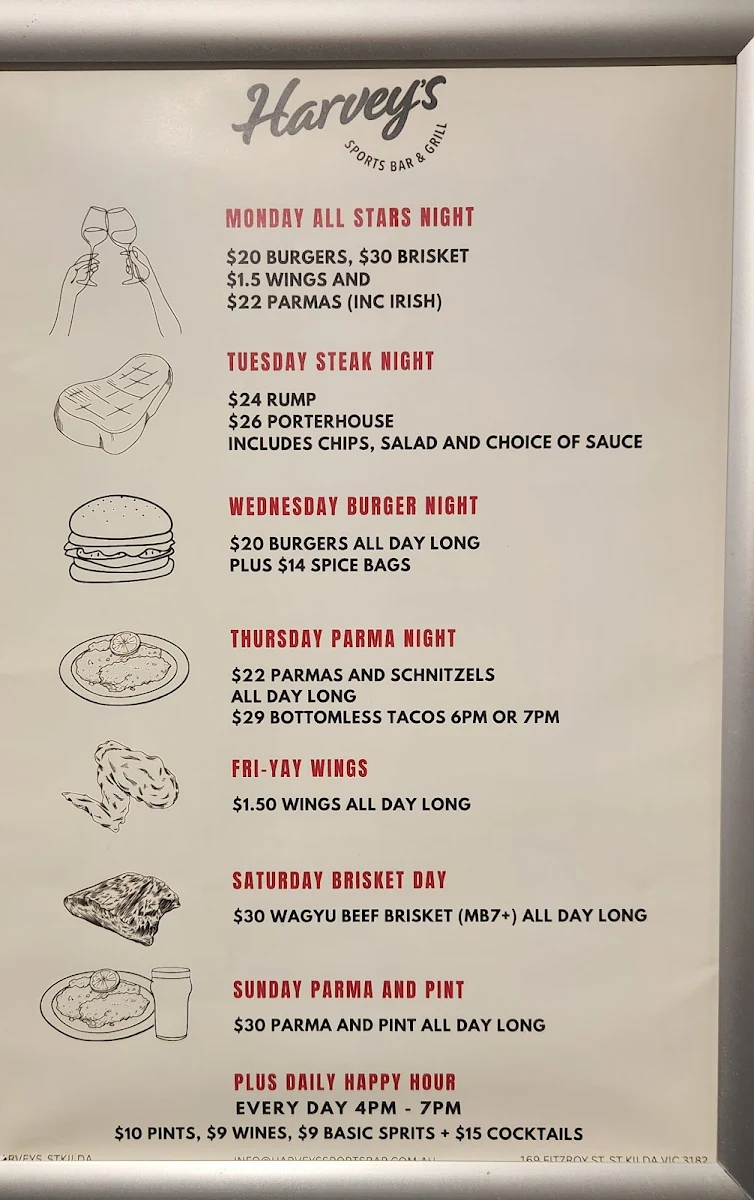 Harvey's
SPORTS BAR & GRILL
MONDAY ALL STARS NIGHT
$20 BURGERS, $30 BRISKET
$1.5 WINGS AND
$22 PARMAS (INC IRISH)
TUESDAY STEAK NIGHT
$24 RUMP
$26 PORTERHOUSE
INCLUDES CHIPS, SALAD AND CHOICE OF SAUCE
WEDNESDAY BURGER NIGHT
$20 BURGERS ALL DAY LONG
PLUS $14 SPICE BAGS
THURSDAY PARMA NIGHT
$22 PARMAS AND SCHNITZELS
ALL DAY LONG
$29 BOTTOMLESS TACOS 6PM OR 7PM
FRI-YAY WINGS
$1.50 WINGS ALL DAY LONG
SATURDAY BRISKET DAY
$30 WAGYU BEEF BRISKET (MB7+) ALL DAY LONG
SUNDAY PARMA AND PINT
$30 PARMA AND PINT ALL DAY LONG
PLUS DAILY HAPPY HOUR
EVERY DAY 4PM - 7PM
$10 PINTS, $9 WINES, $9 BASIC SPRITS + $15 COCKTAILS
ARVEYS_STKILDA INFO@HARVEYSSPORTSBAR.COM.AU 169 FITZROY ST, ST KILDA VIC 3182